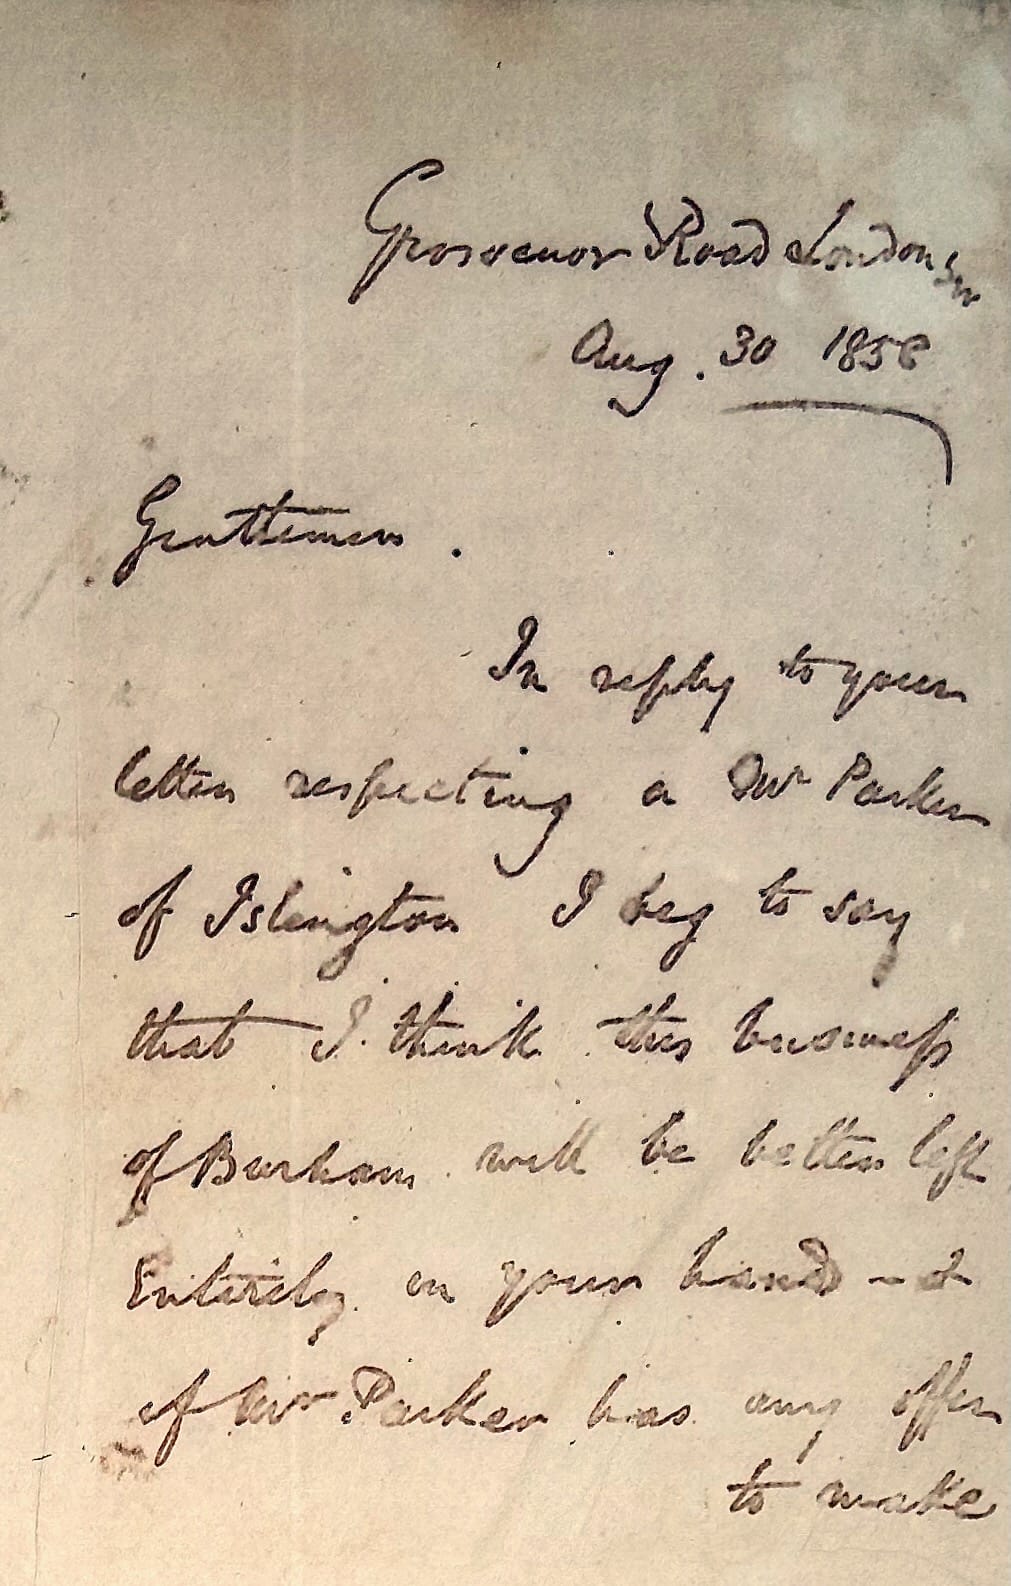 Grosvenor Road London SW
Aug. 30 1858
Gentlemen.
In reply to your
letter respecting a Mr Parker
of Islington I beg to say
that I think this business
of Burham will be better left
Entirely in your hands - &
if Mr Parker has any offer
to make